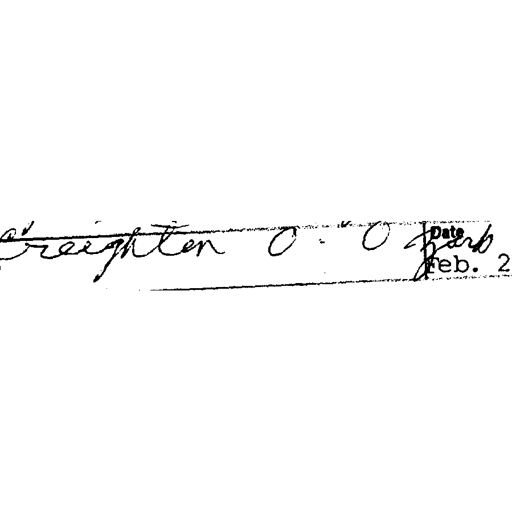 Creighton O. O
Date
Feb. 2